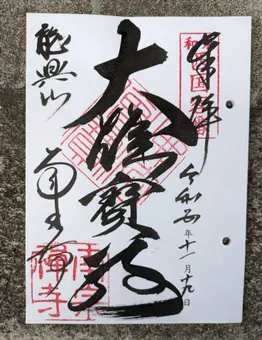 奉拝
令和四年十一月十九日
大雄寶殿
龍興山
南宗寺
南宗
禅寺